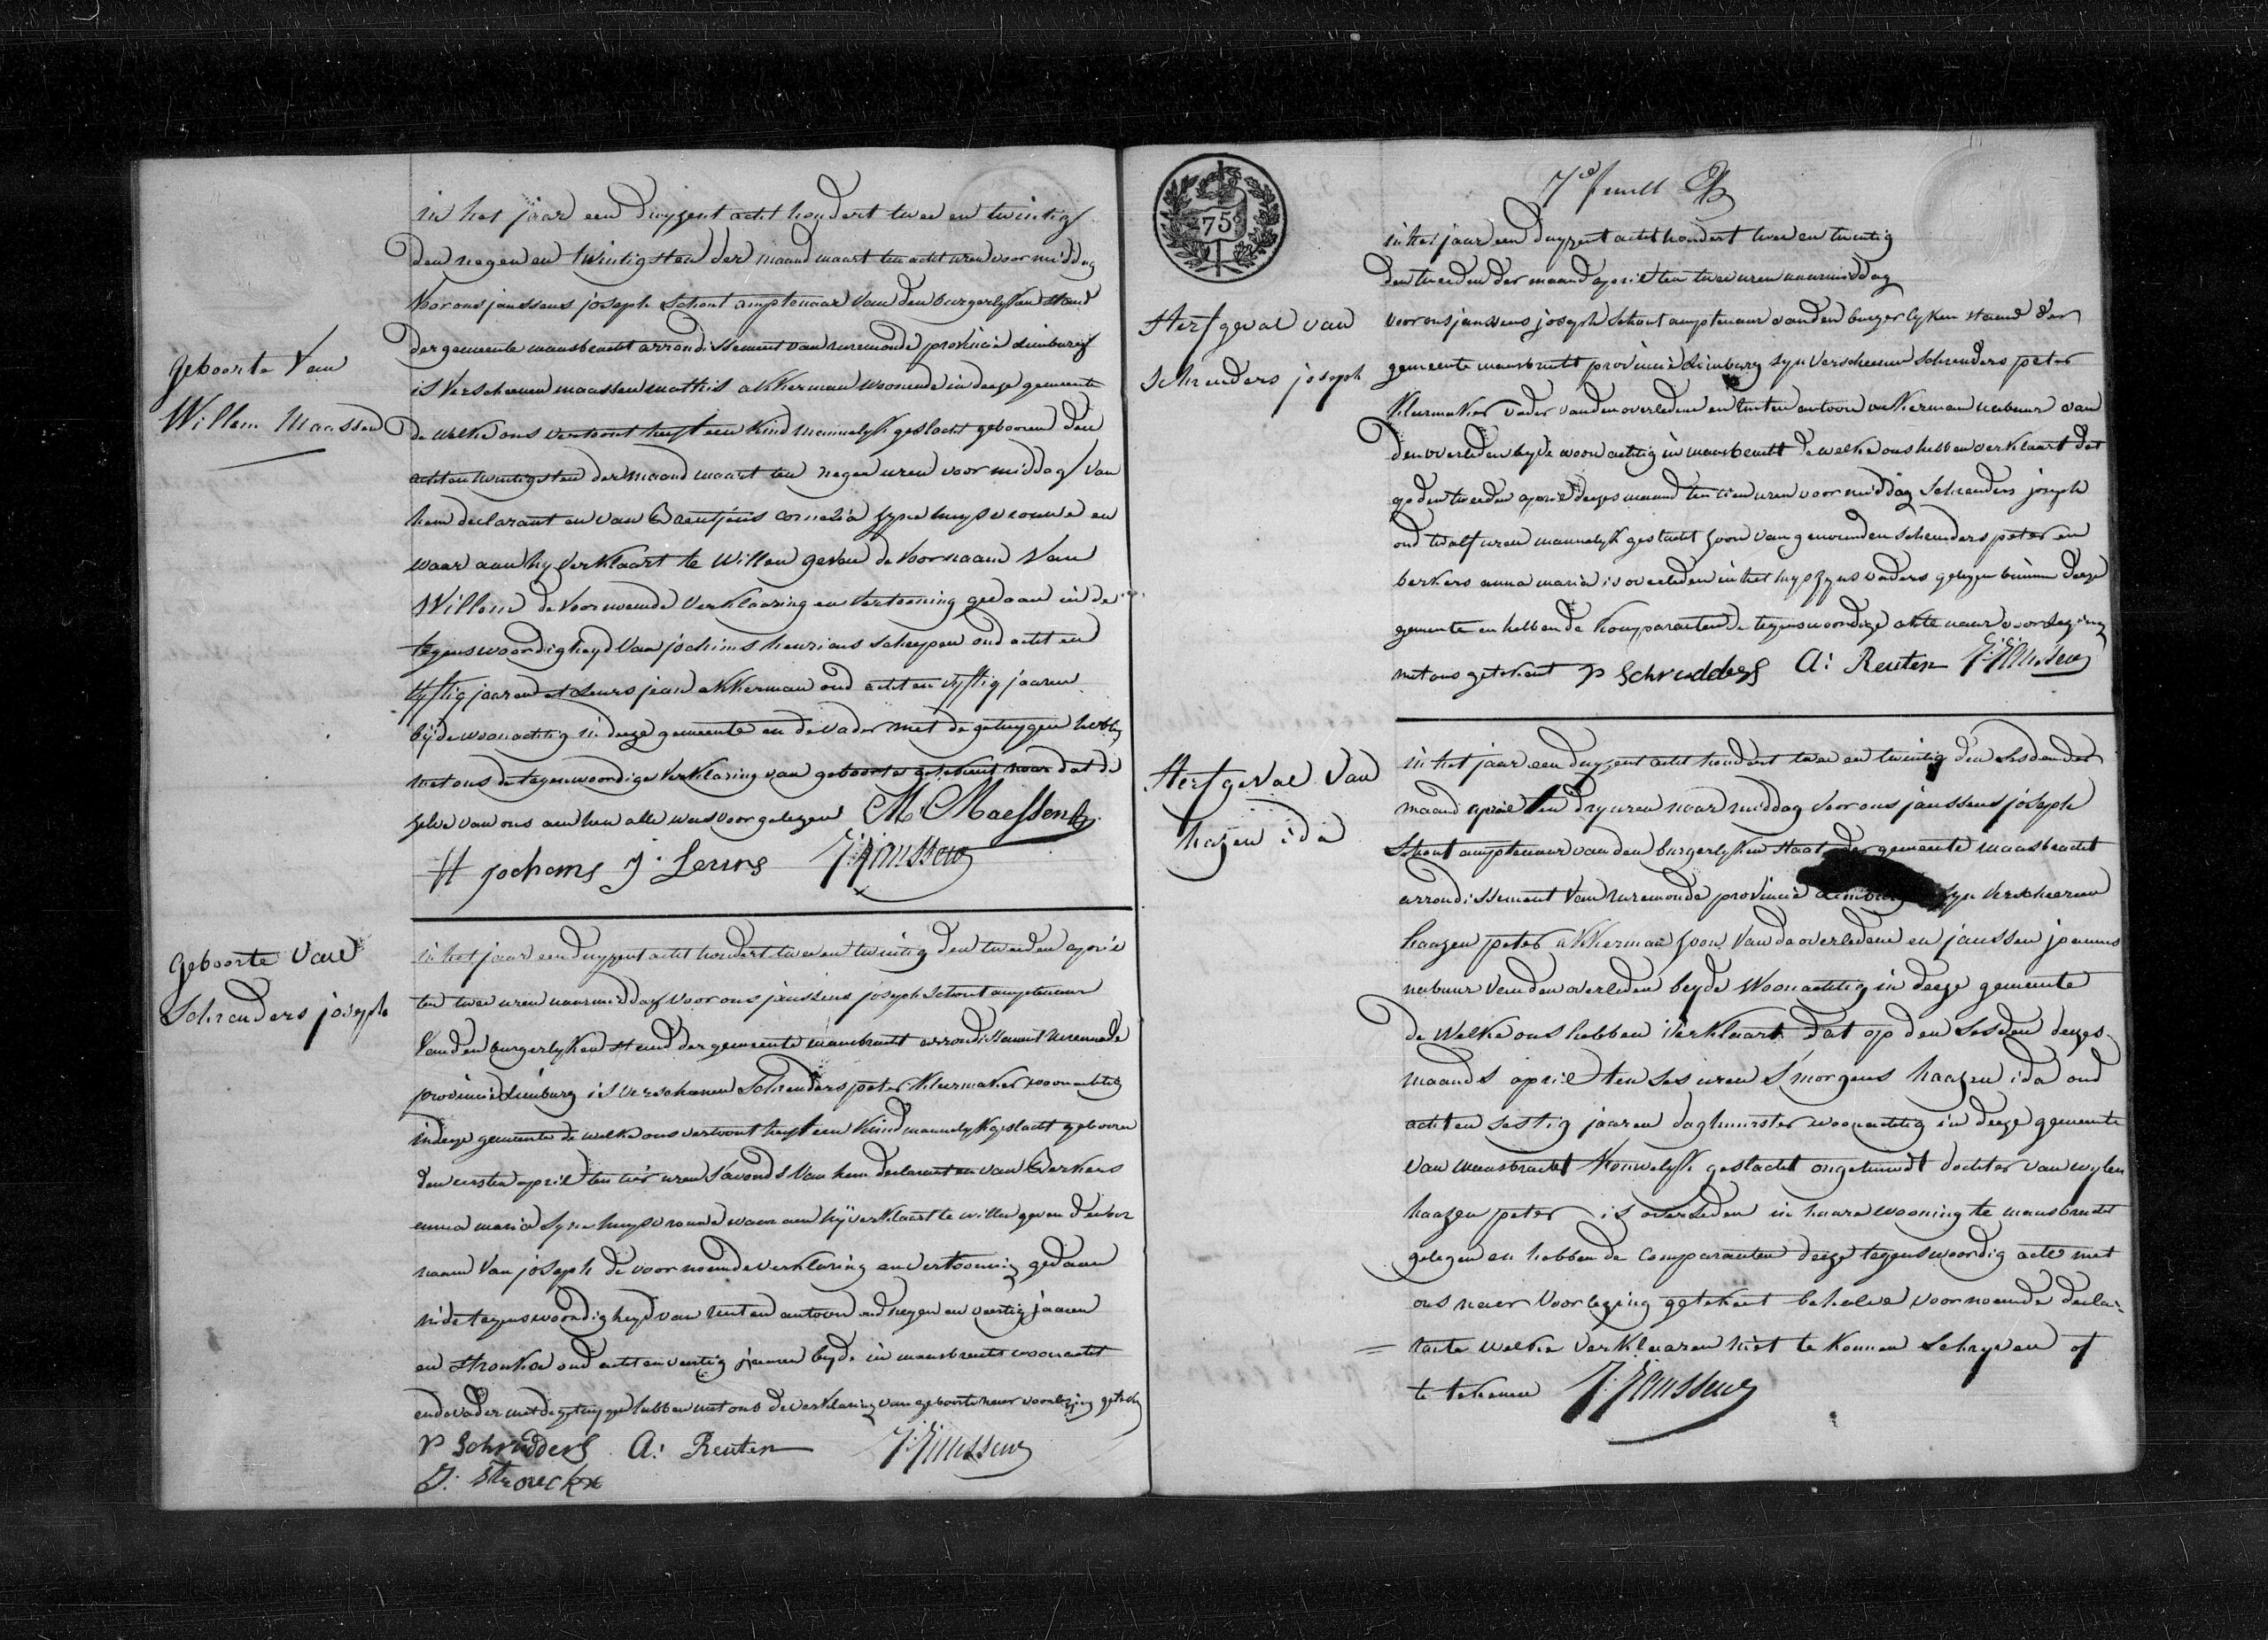 Geboorte van
Willem Maassen
in het jaar een duyzent acht hondert twee en twintig
den negen en twintigsten der maand maart ten acht uren voor middag
Voor ons janssens joseph schout amptenaar van den burgerlyken stand
der gemeente maasbracht arrondissement van ruremonde provincie Limburg
is verscheenen maassen mathis akkerman woonende in deeze gemeente
de welke ons vertoont heeft een kind mannelyk geslacht gebooren den
acht en twintigsten der maand maart ten negen uren voor middag van
hem declarant en van Breutjens cornelia zyne huysvrouwe en
waar aan hy verklaart te willen geven de voornaam van
Willem de voornoemde verklaaring en vertooning gedaan in de
tegenswoordigheyd van jochims henricus scheepen oud acht en
vyftig jaaren et Leurs jean akkerman oud acht en vyftig jaaren
byde woonachtig in deeze gemeente en de vader met de getuygen hebben
met ons de tegenwoordige verklaring van geboorte getekent naar dat de
zelve van ons aen hen alle was voorgelezen M. Maessen
H jochems J. Leurs J: Janssens
Geboorte van
Schreuders joseph
in het jaar een duyzent acht hondert twee en twintig den tweeden april
ten twee uren naarmiddag voor ons janssens joseph schout amptenaar
van den burgerlyken stand der gemeente maasbracht arrondissement ruremonde
provincie Limburg is verscheenen Schreuders peter kleermaker woonachtig
in deze gemeente de welke ons vertoont heeft een kind mannelyk geslacht gebooren
den eersten april ten tier uren s'avonds van hem declarant en van Berkers
anna maria zyne huysvrouwe waar aen hy verklaart te willen geven den voor
naam van joseph de voornoemde verklaring en vertooning gedaan
in de tegenswoordigheyd van Reuten antoon oud negen en veertig jaaren
en stronken oud acht en veertig jaaren beyde in maasbracht woonacht
en de vader met de getuygen hebben met ons de verklaring van geboorte naer voorlezing getek
P Schrudders A: Reuten J: Janssens
J. Stroeckx
7e feuill
75
Sterfgeval van
Schreuders joseph
in het jaar een duyzent acht hondert twee en twintig
den tweeden der maand april ten twee uren naarmiddag
voor ons janssens joseph schout amptenaar van den burgerlyken stand der
gemeente maasbracht provincie Limburg syn verscheenen Schreuders peter
kleermaker vader van den overleden en Reuten antoon akkerman nabuur van
den overleden beyde woonachtig in maasbracht de welke ons hebben verklaart dat
op den tweeden april deezes maand ten tien uren voor middag Schreuders joseph
oud twalf uren mannelyk geslacht zoon van genoemden Schreuders peter en
berkers anna maria is overleden in het huys zyns vaders gelegen binnen deeze
gemeente en hebben de komparanten de tegenswoordige akte naar voorlezing
met ons getekent P Schrudders A: Reuten J: Janssens
Sterfgeval van
hazen ida
in het jaar een duyzent acht hondert twee en twintig den sesden der
maand april ten dry uren naar middag voor ons janssens joseph
Schout amptenaar van den burgerlyken staat der gemeente maasbracht
arrondissement van ruremonde provincie Limburg syn verscheenen
haazen peter akkerman zoon van de overledene en janssen joannes
nabuur van den overleden beyde woonachtig in deeze gemeente
de welke ons hebben verklaart dat op den sesden dezes
maands april ten ses uren s'morgens haazen ida oud
acht en sestig jaaren daghuurster woonachtig in deeze gemeente
van maasbracht vrouwelyk geslacht ongetrouwdt dochter van wylen
haazen peter is overleden in haare wooning te maasbracht
gelegen en hebben de comparanten deeze tegenswoordig acte met
ons naer voorlezing getekent behalve voornoemde decla=
= rante welke verklaaren niet te konnen schryven of
te tekenen J: Janssens